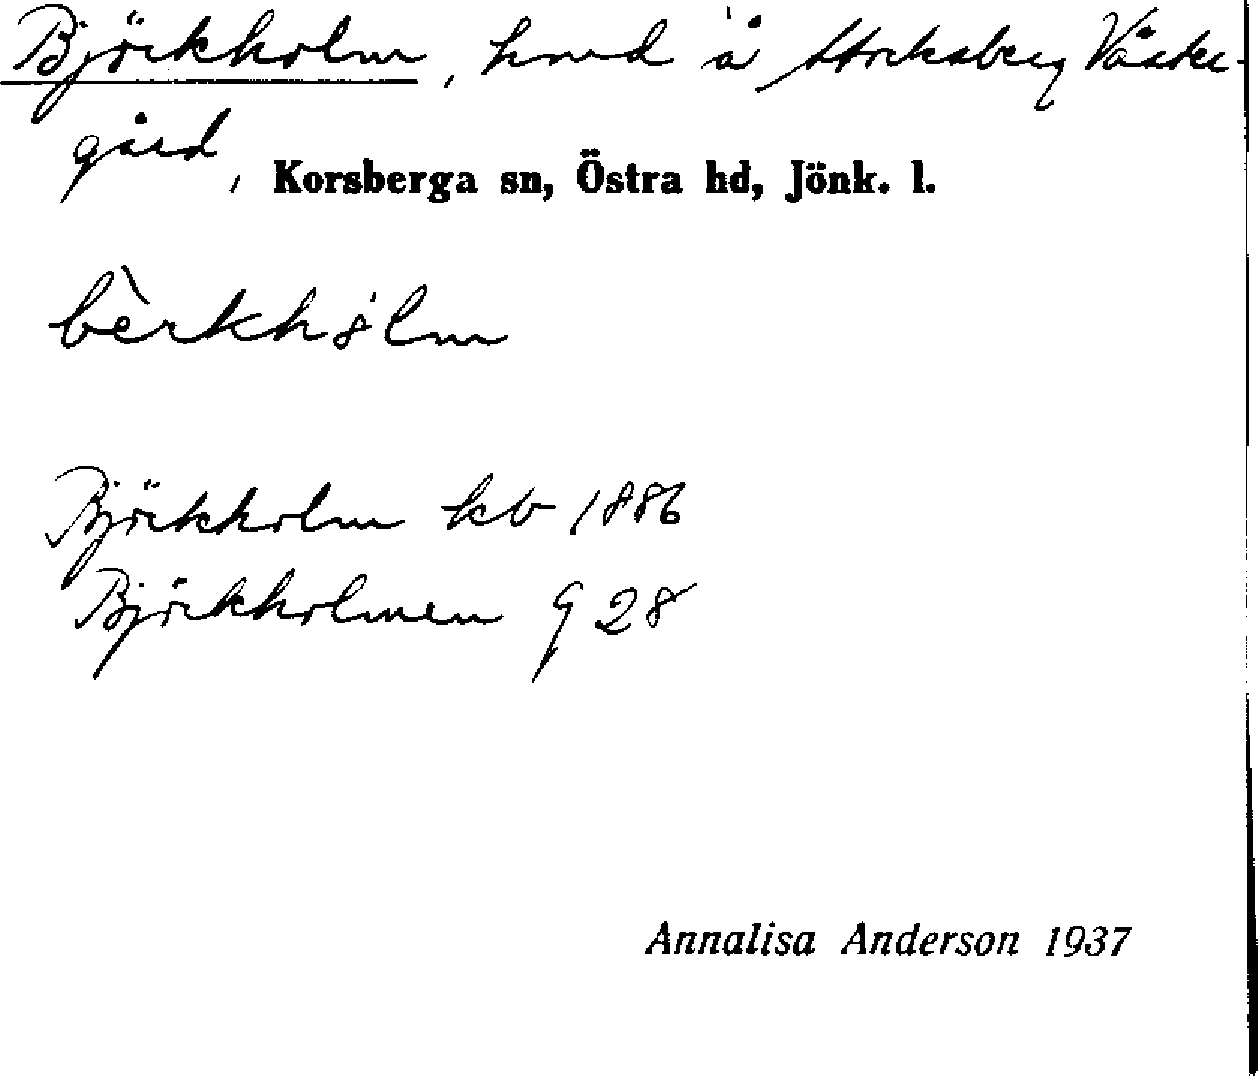 Björkholm, hmd å Stocksberg Väster-
gård, Korsberga sn, Östra hd, Jönk. l.
bèrkhólm
Björkholm kb 1886
Björkholmen G 28
Annalisa Anderson 1937